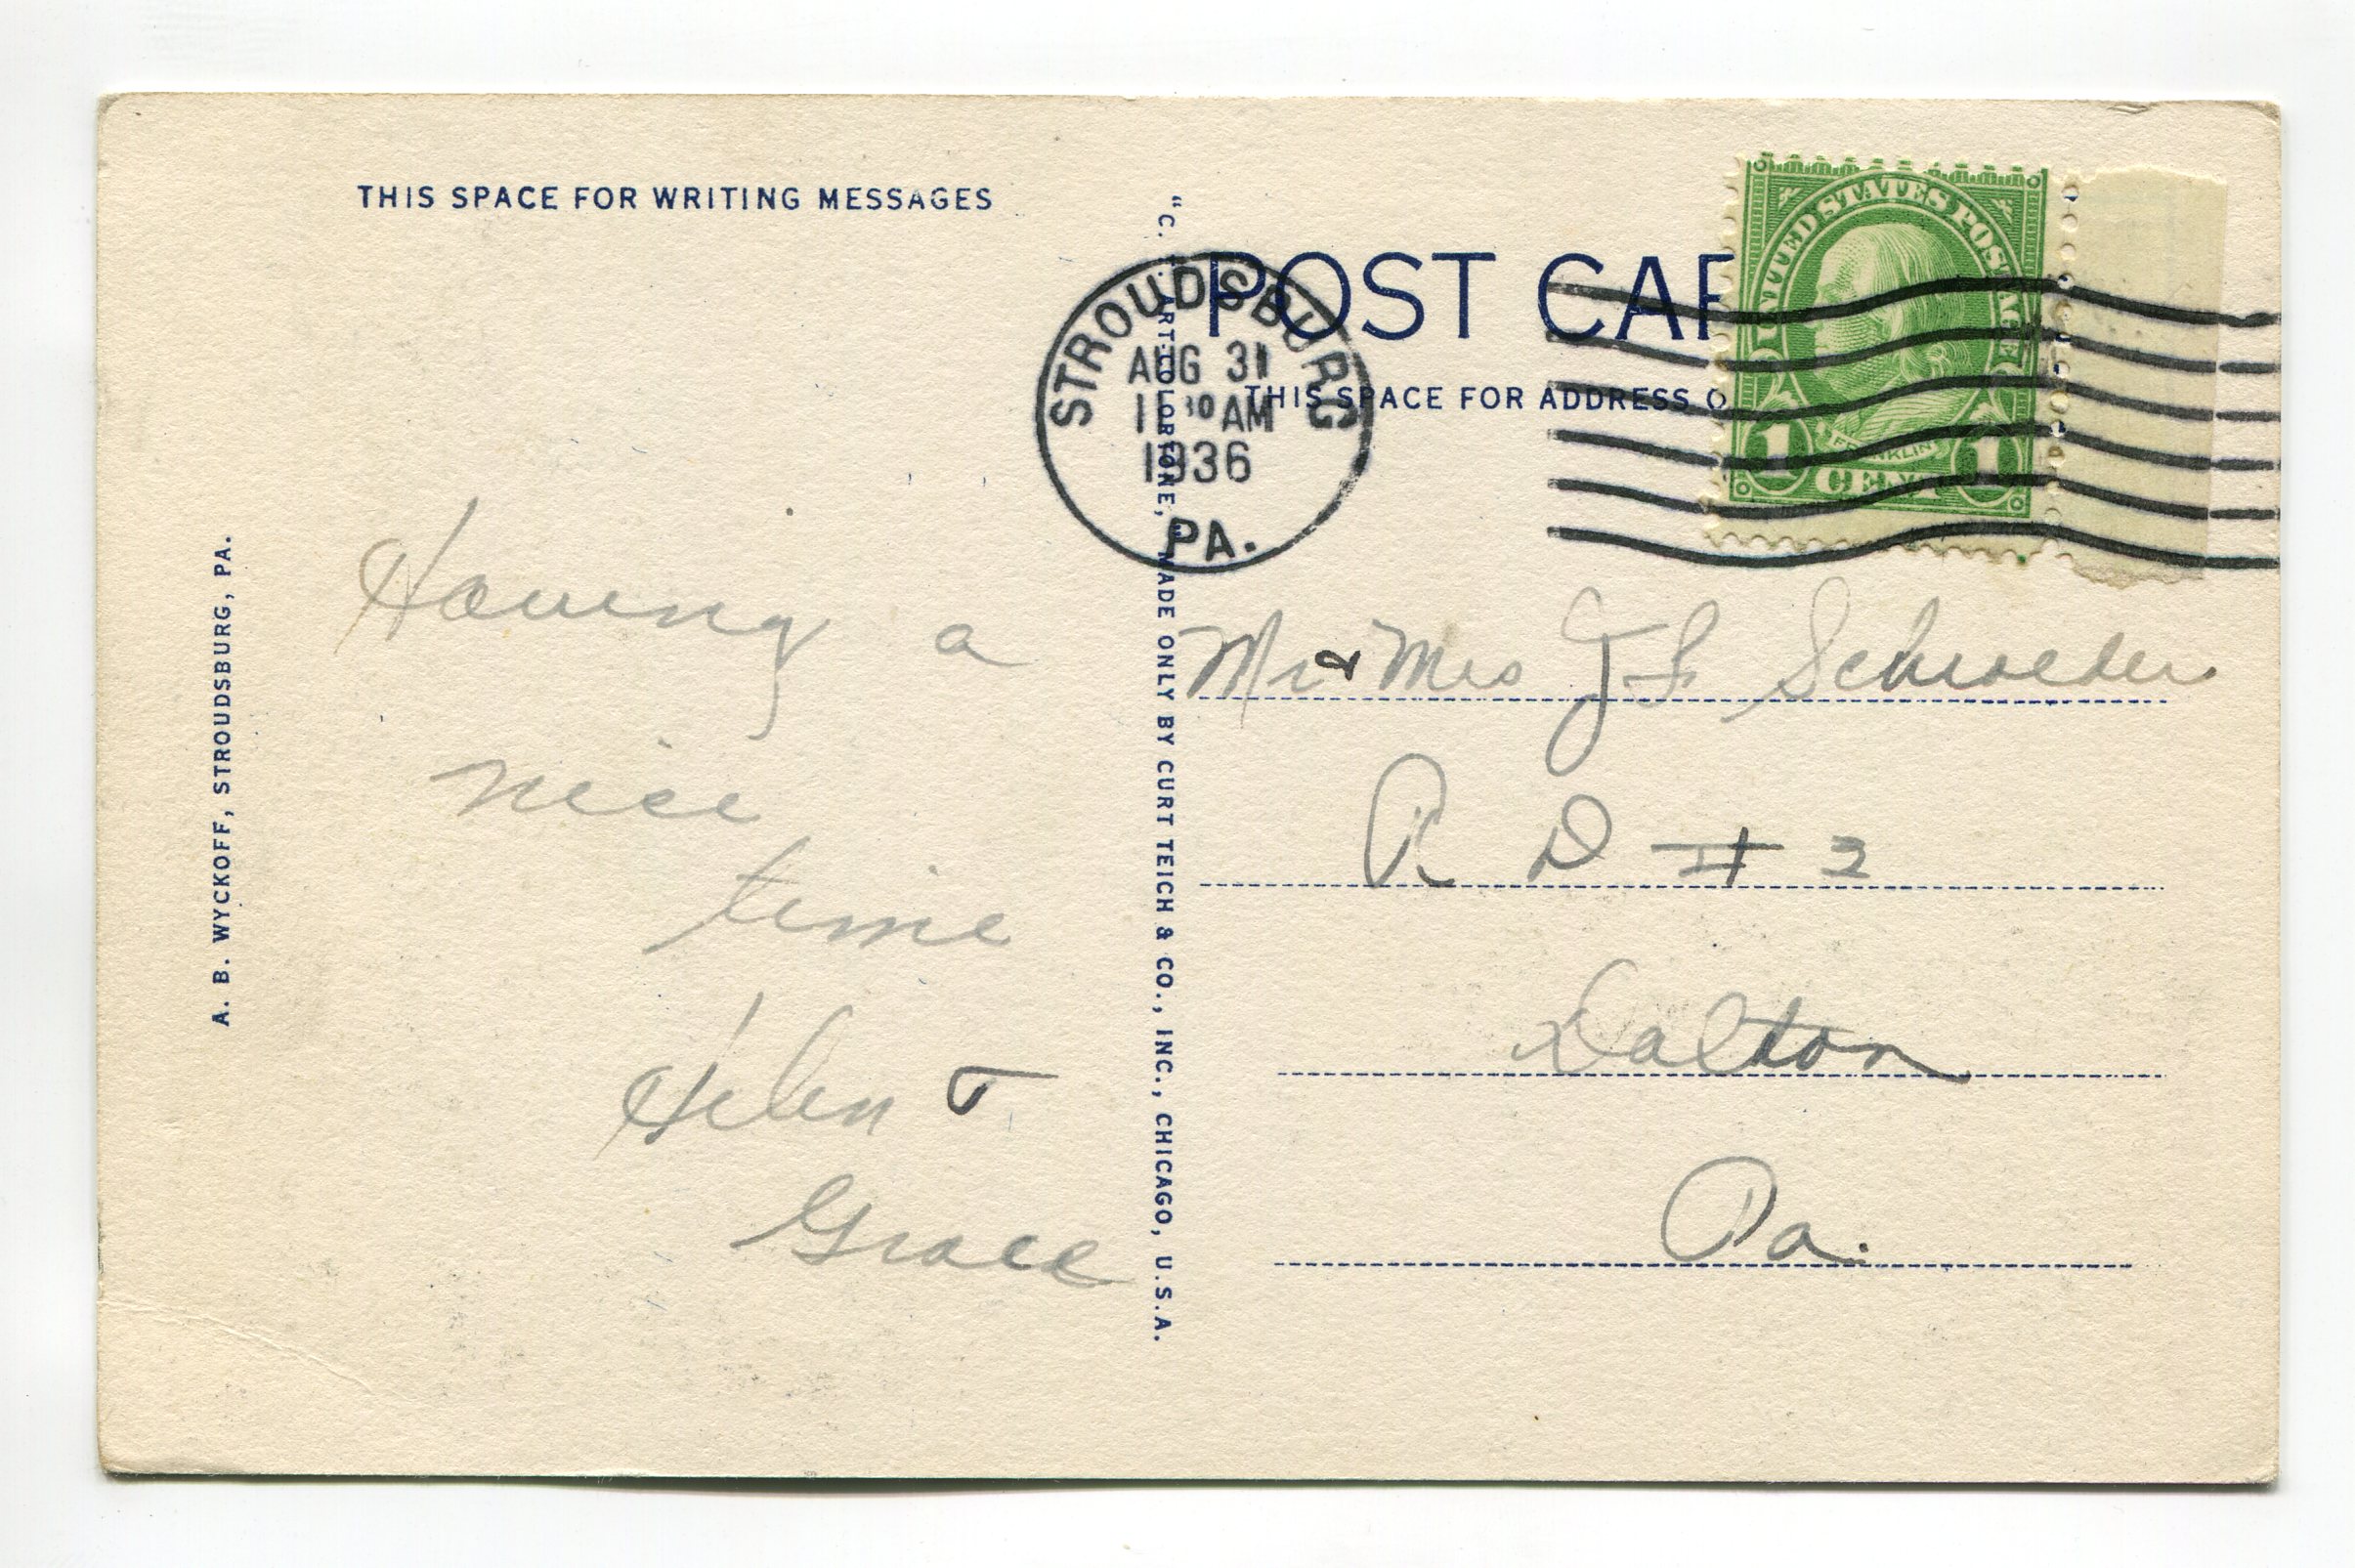 THIS SPACE FOR WRITING MESSAGES
A. B. WYCKOFF, STROUDSBURG, PA.
Having a
nice
time
Helen &
Grace
"C. T. ART-COLORTONE," MADE ONLY BY CURT TEICH & CO., INC., CHICAGO, U.S.A.
STROUDSBURG
AUG 31
AM
1936
PA.
POST CAR
THIS SPACE FOR ADDRESS O
UNITED STATES POSTAGE
FRANKLIN
1 CENT 1
Mr & Mrs J F Schroeder
R D # 2
Dalton
Pa.